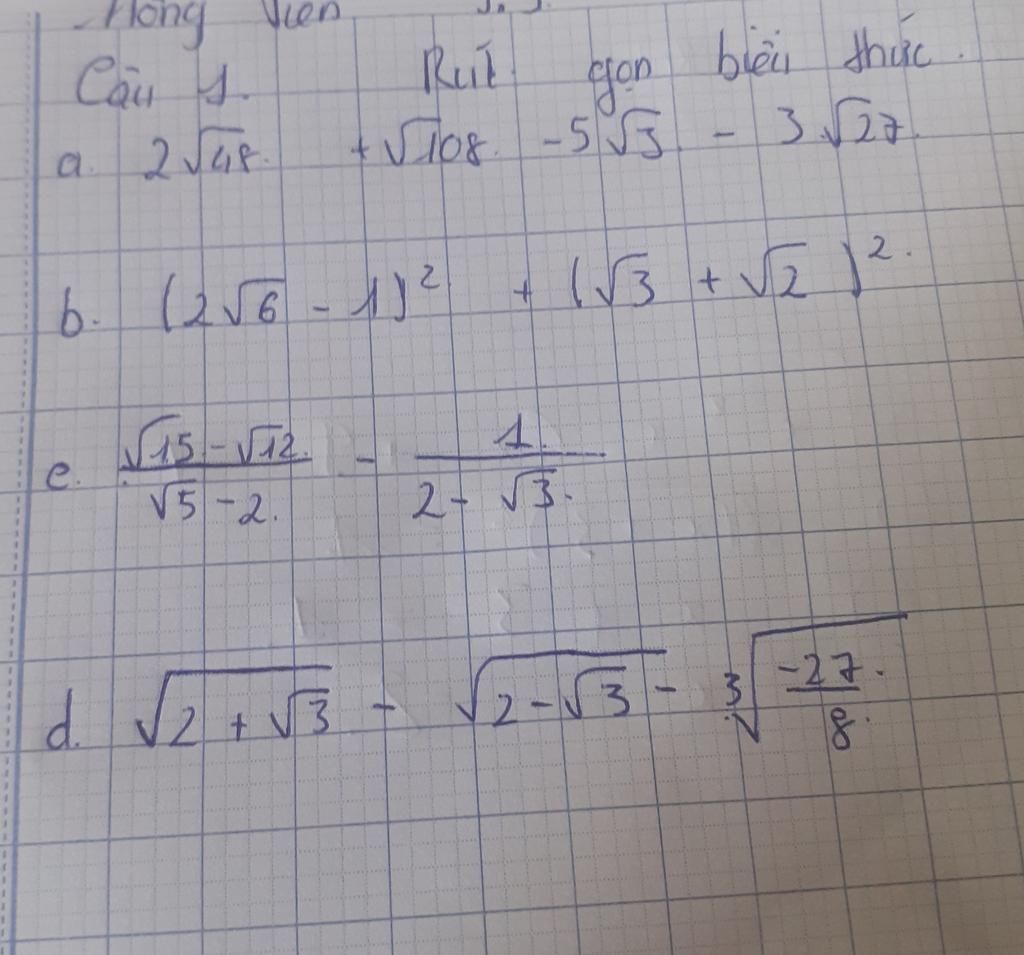 Hồng Viên
Câu 1. Rút gọn biểu thức.
a. 2√48 + √108 - 5√3 - 3√27
b. (2√6 - 1)² + (√3 + √2)².
c. (√15 - √12)/(√5 - 2) - 1/(2 - √3)
d. √(2 + √3) - √(2 - √3) - ∛(-27/8)